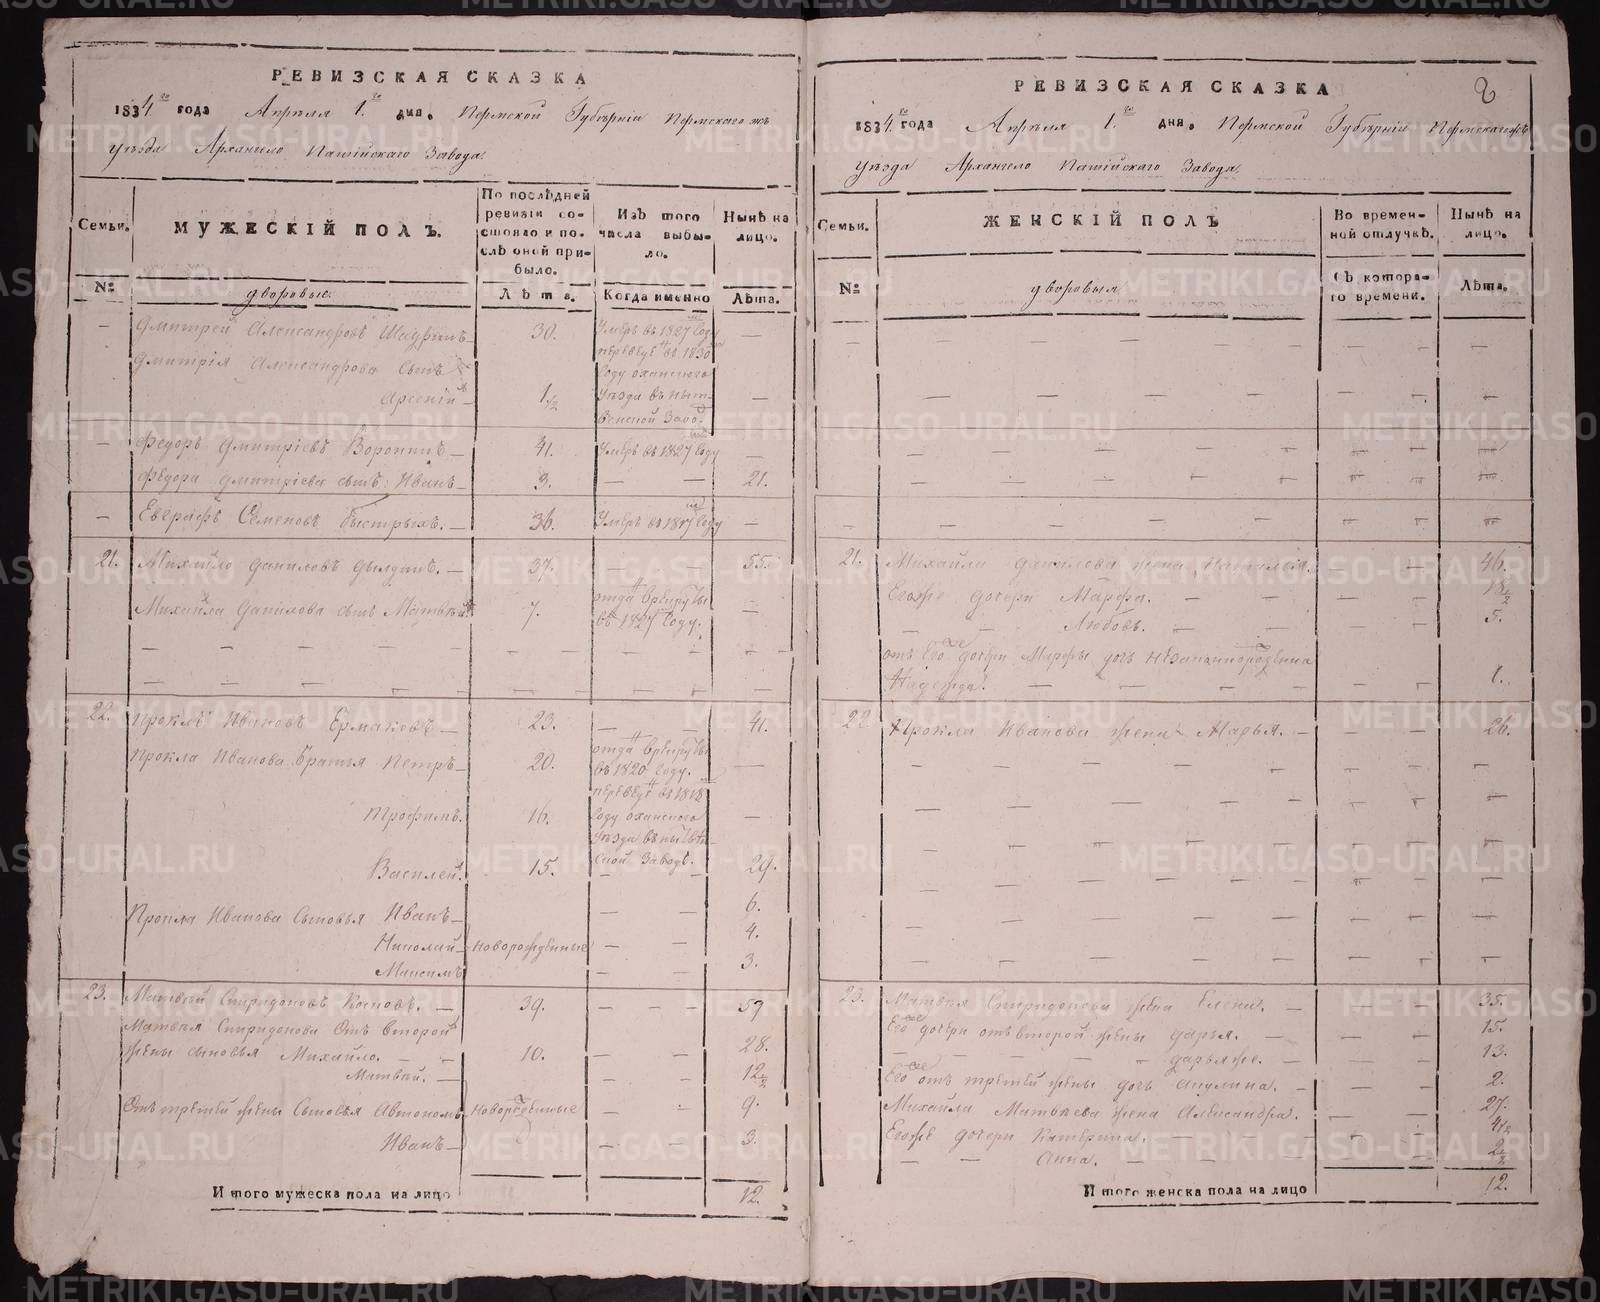 РЕВИЗСКАЯ СКАЗКА
1834 го года Апреля 1 го дня. Пермской Губерніи Пермскаго жъ
уезда Архангело Пашійскаго Завода.
Семьи. МУЖЕСКІЙ ПОЛЪ. По послѣдней ревизіи состояло и послѣ оной прибыло. Изъ того числа выбыло. Нынѣ на лицо.
№ дворовые. Лѣта. Когда именно Лѣта.
— Дмитрей Александровъ 30. Умеръ въ 1827 году —
Дмитрія Александрова сынъ переведенъ въ 1830
году оханскаго
Арсеній — 1 1/2 уезда въ —
Завод.
— Федоръ Дмитріевъ Воронинъ — 41. Умеръ въ 1827 году —
Федора Дмитріева сынъ: Иванъ — 3. — — 21.
— Евграфъ Семеновъ Быстрыхъ. — 36. Умеръ въ году —
21. Михайло Даниловъ — 37. — — 55.
Михайла Данилова сынъ Матвей 7. отда въ рекруты —
въ 1827 году.
22. Проклъ Ивановъ Ермаковъ — 23. — — 41.
Прокла Иванова братья Петръ — 20. отда въ рекруты —
въ 1820 году.
переведе въ 1818
Трофимъ. 16. году оханскаго —
уезда въ
Василей. 15. ской Заводъ. 29.
Прокла Иванова сыновья Иванъ — — — 6.
Николай — новорожденные — — 4.
Максимъ — — 3.
23. Матвей Спиридоновъ — 39. — — 59
Матвея Спиридонова отъ второй
жены сыновья Михайло. — — 10. — — 28.
Матвей. — — — 12 1/2
Отъ третей жены сыновья Автономъ новорожденные — — 9.
Иванъ — — — 3.
Итого мужеска пола на лицо 12.
РЕВИЗСКАЯ СКАЗКА
1834 го года Апреля 1 го дня. Пермской Губерніи Пермскаго жъ
уезда Архангело Пашійскаго Завода.
Семьи. ЖЕНСКІЙ ПОЛЪ Во временной отлучкѣ. Нынѣ на лицо.
№ дворовыя Съ котораго времени. Лѣта.
21. Михайла Данилова жена Наталья. — 46.
Егоже дочери Марфа. — — — — 18 1/2
— — Любовь. — — 5.
отъ Его же дочери Марфы дочь незаконнорожденна
Надежда. — — — — — 1.
22 Прокла Иванова жена Марья. — — — 26.
23. Матвея Спиридонова жена Елена. — — — 35.
Его же дочери отъ второй жены Дарья. — 15.
— — — — — Дарья же. — — — 13.
Его же отъ третей жены дочь Акулина. — 2.
Михайла Матвеева жена Александра. — — 27.
Егоже дочери Катерина. — — — — 4 1/2
— — Анна. — — — — 2 1/2
Итого женска пола на лицо 12.
METRIKI.GASO-URAL.RU